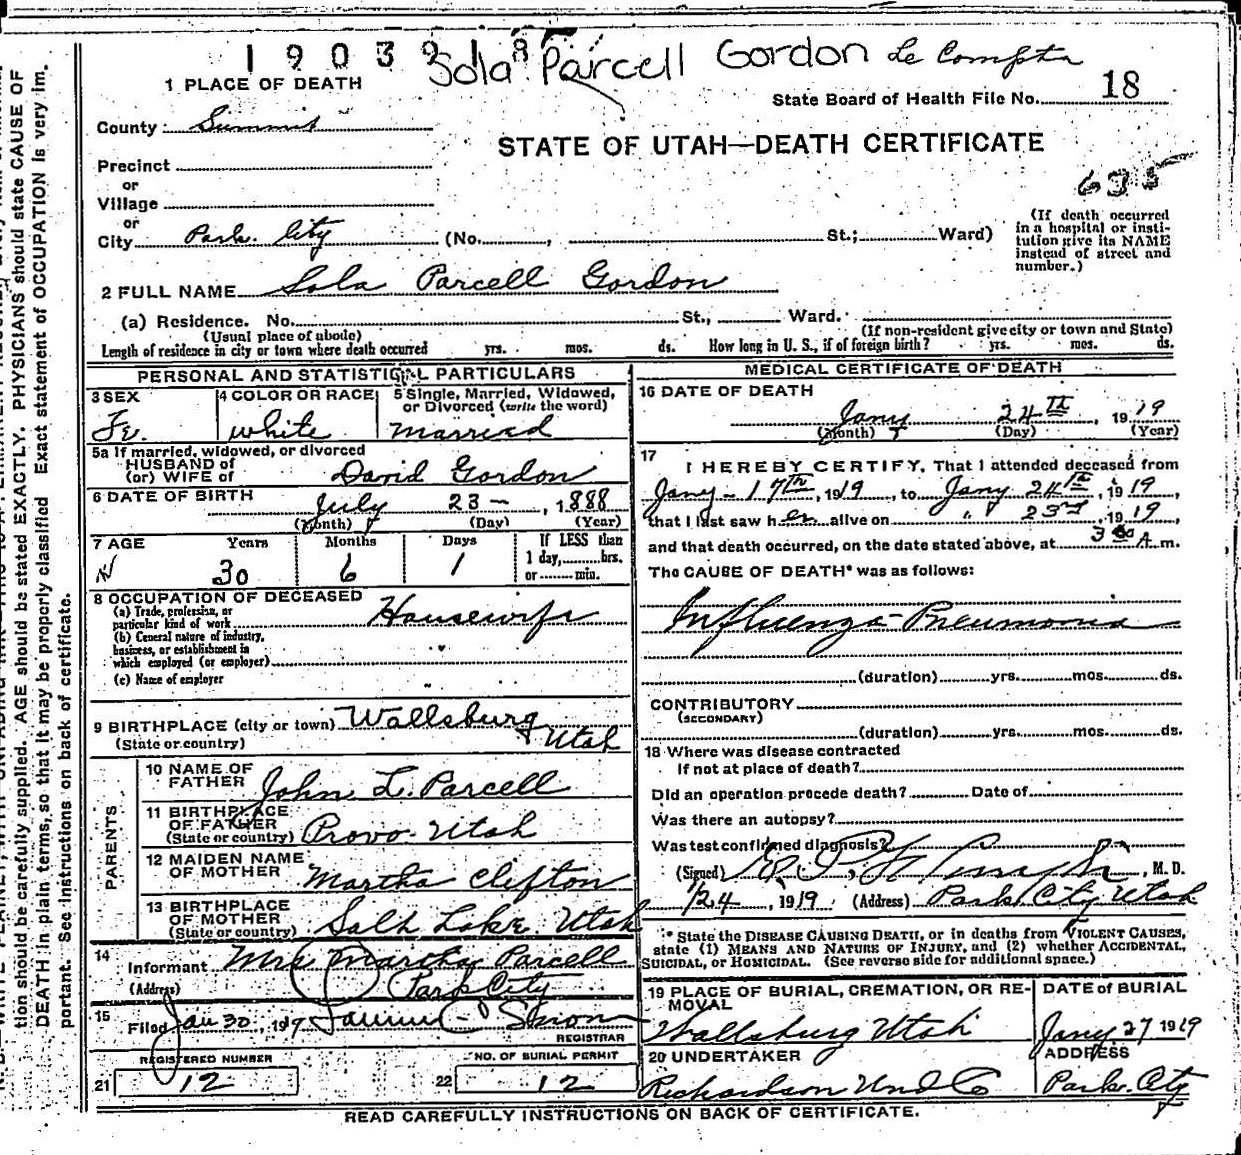 1903918 Sola Parcell Gordon Le Compte
1 PLACE OF DEATH
State Board of Health File No. 18
County Summit
STATE OF UTAH—DEATH CERTIFICATE
Precinct
635
or
Village
or
City Park City (No. , St.; Ward)
(If death occurred
in a hospital or insti-
tution give its NAME
instead of street and
number.)
2 FULL NAME Sola Parcell Gordon
(a) Residence. No. St., Ward.
(Usual place of abode) (If non-resident give city or town and State)
Length of residence in city or town where death occurred yrs. mos. ds. How long in U. S., if of foreign birth? yrs. mos. ds.
PERSONAL AND STATISTICAL PARTICULARS
3 SEX
Fe.
4 COLOR OR RACE
white
5 Single, Married, Widowed,
or Divorced (write the word)
married
5a If married, widowed, or divorced
HUSBAND of
(or) WIFE of David Gordon
6 DATE OF BIRTH July 23 — , 1888
(Month) (Day) (Year)
7 AGE Years Months Days If LESS than
1 day, hrs.
30 6 1 or min.
8 OCCUPATION OF DECEASED
(a) Trade, profession, or
particular kind of work Housewife
(b) General nature of industry,
business, or establishment in
which employed (or employer)
(c) Name of employer
9 BIRTHPLACE (city or town) Wallsburg
(State or country) Utah
PARENTS
10 NAME OF
FATHER John L. Parcell
11 BIRTHPLACE
OF FATHER
(State or country) Provo Utah
12 MAIDEN NAME
OF MOTHER Martha Clifton
13 BIRTHPLACE
OF MOTHER
(State or country) Salt Lake, Utah
14
Informant Mrs Martha Parcell
(Address) Park City
15
Filed Jan 30, 1919
REGISTRAR
REGISTERED NUMBER
21 12
NO. OF BURIAL PERMIT
22 12
MEDICAL CERTIFICATE OF DEATH
16 DATE OF DEATH
Jany 24th, 1919
(Month) (Day) (Year)
17
I HEREBY CERTIFY, That I attended deceased from
Jany - 17th, 1919, to Jany 24th, 1919,
that I last saw her alive on " 23rd 1919,
and that death occurred, on the date stated above, at 3 00 A. m.
The CAUSE OF DEATH* was as follows:
Influenza-Pneumonia
(duration) yrs. mos. ds.
CONTRIBUTORY
(SECONDARY)
(duration) yrs. mos. ds.
18 Where was disease contracted
If not at place of death?
Did an operation precede death? Date of
Was there an autopsy?
Was test confirmed diagnosis?
(Signed) , M. D.
1/24, 1919 (Address) Park City Utah
* State the DISEASE CAUSING DEATH, or in deaths from VIOLENT CAUSES,
state (1) MEANS AND NATURE OF INJURY, and (2) whether ACCIDENTAL,
SUICIDAL, or HOMICIDAL. (See reverse side for additional space.)
19 PLACE OF BURIAL, CREMATION, OR RE-
MOVAL
Wallsburg Utah
DATE of BURIAL
Jany 27 1919
20 UNDERTAKER
Richardson Und Co
ADDRESS
Park City
READ CAREFULLY INSTRUCTIONS ON BACK OF CERTIFICATE.
tion should be carefully supplied. AGE should be stated EXACTLY. PHYSICIANS should state CAUSE OF
DEATH in plain terms, so that it may be properly classified Exact statement of OCCUPATION is very im.
portant. See instructions on back of certificate.